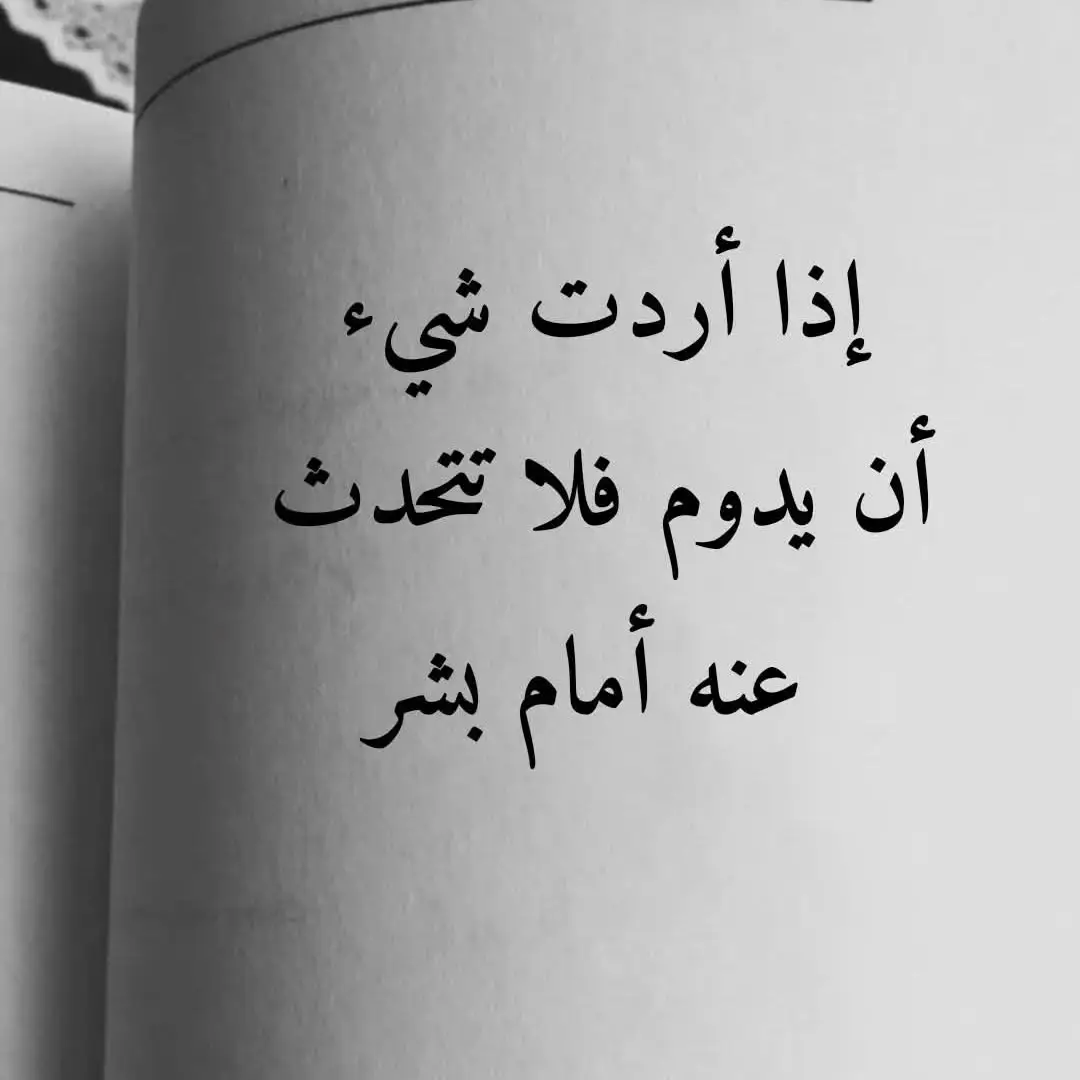 إذا أردت شيء
أن يدوم فلا تتحدث
عنه أمام بشر